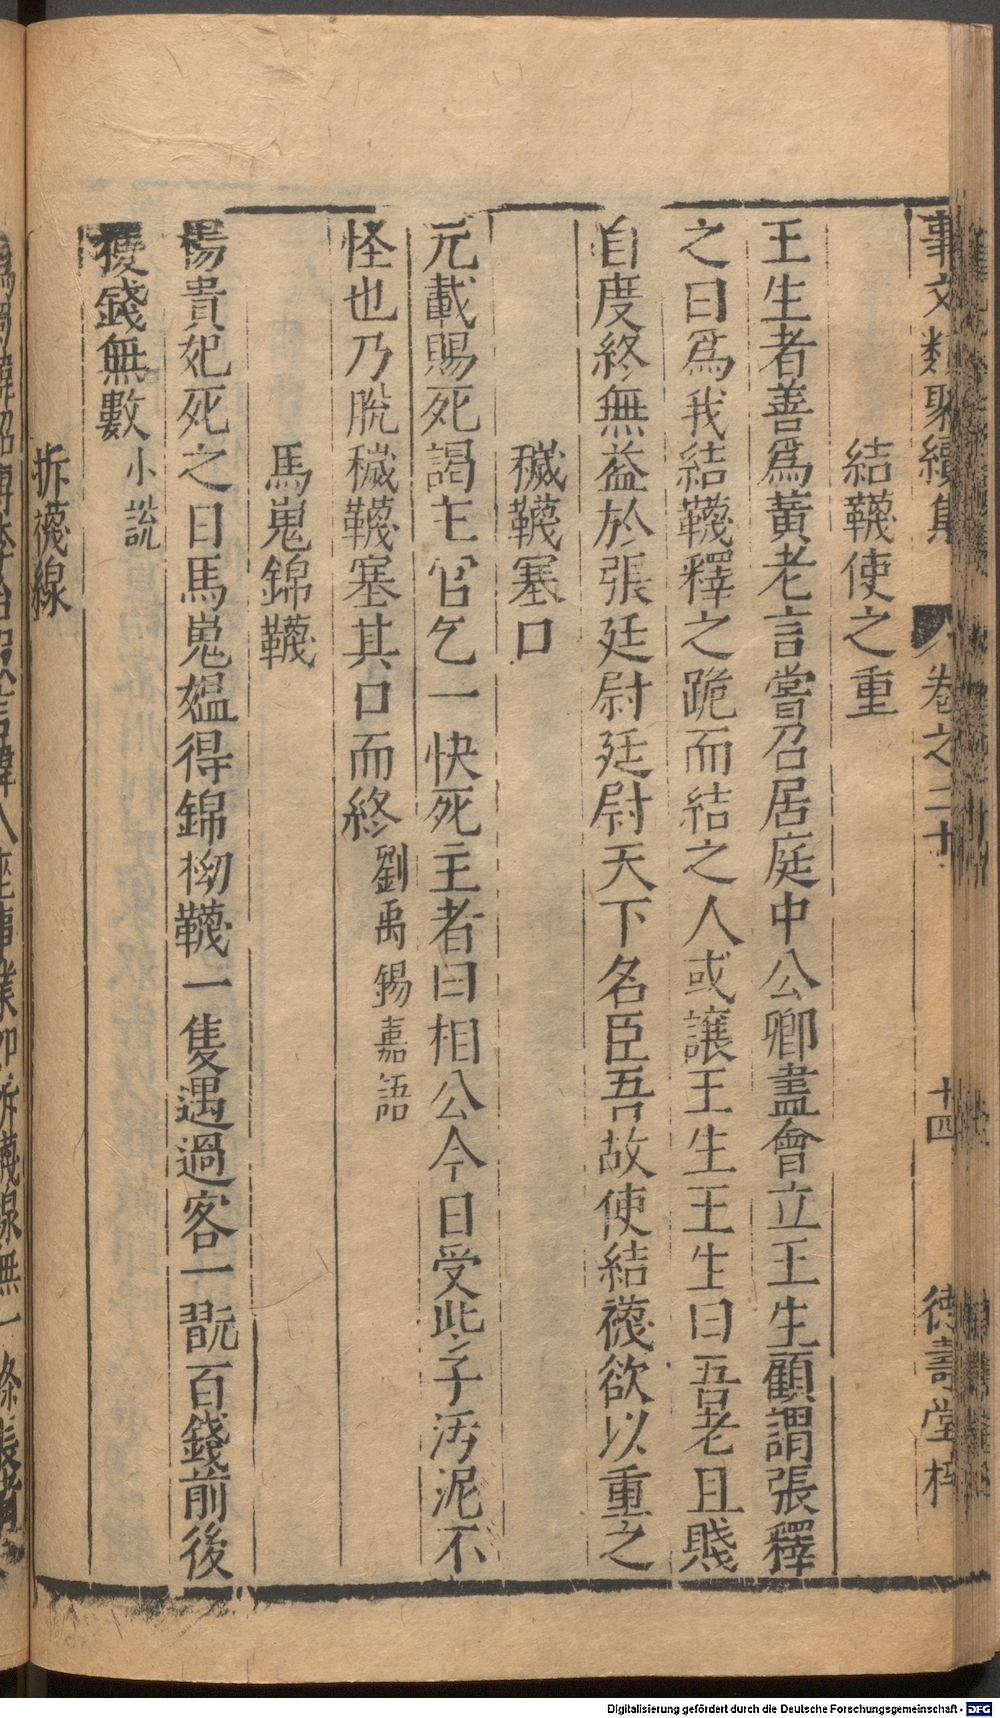 事文類聚續集 卷之二十 十四 德壽堂梓
結韈使之重
王生者善爲黃老言嘗召居庭中公卿盡會立王生顧謂張釋
之曰爲我結韈釋之跪而結之人或讓王生王生曰吾老且賤
自度終無益於張廷尉廷尉天下名臣吾故使結襪欲以重之
穢韈塞口
元載賜死謁主官乞一快死主者曰相公今日受些子汚泥不
怪也乃脫穢韈塞其口而終劉禹錫嘉語
馬嵬錦韈
楊貴妃死之日馬嵬媼得錦袎韈一隻遇過客一翫百錢前後
獲錢無數小說
拆襪線
Digitalisierung gefördert durch die Deutsche Forschungsgemeinschaft - DFG